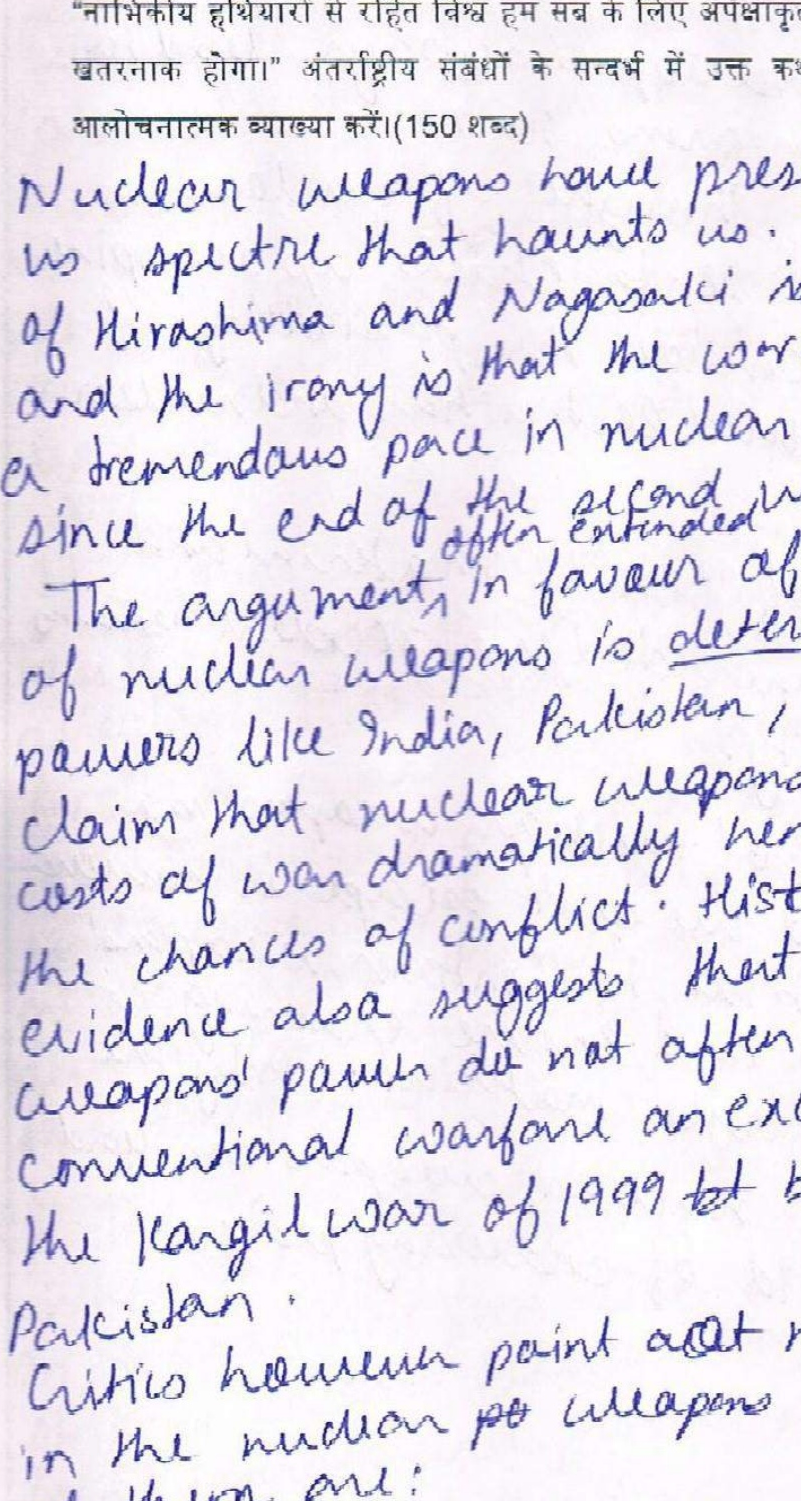 "नाभिकीय हथियारों से रहित विश्व हम सब के लिए अपेक्षाकृत
खतरनाक होगा।" अंतर्राष्ट्रीय संबंधों के सन्दर्भ में उक्त
आलोचनात्मक व्याख्या करें।(150 शब्द)
Nuclear weapons have
us spectre that haunts us.
of Hirashima and Nagasaki
and the irony is that the
a tremendous pace in nuclear
since the end of the second
often extended
The argument, in favour of
of nuclear weapons is
powers like India, Pakistan,
claim that nuclear weapons
costs of war dramatically
the chances of conflict.
evidence also suggests that
weapons' power do not often
conventional warfare an
the Kargil war of 1999
Pakistan.
Critics however point out
in the nuclear weapons
are: